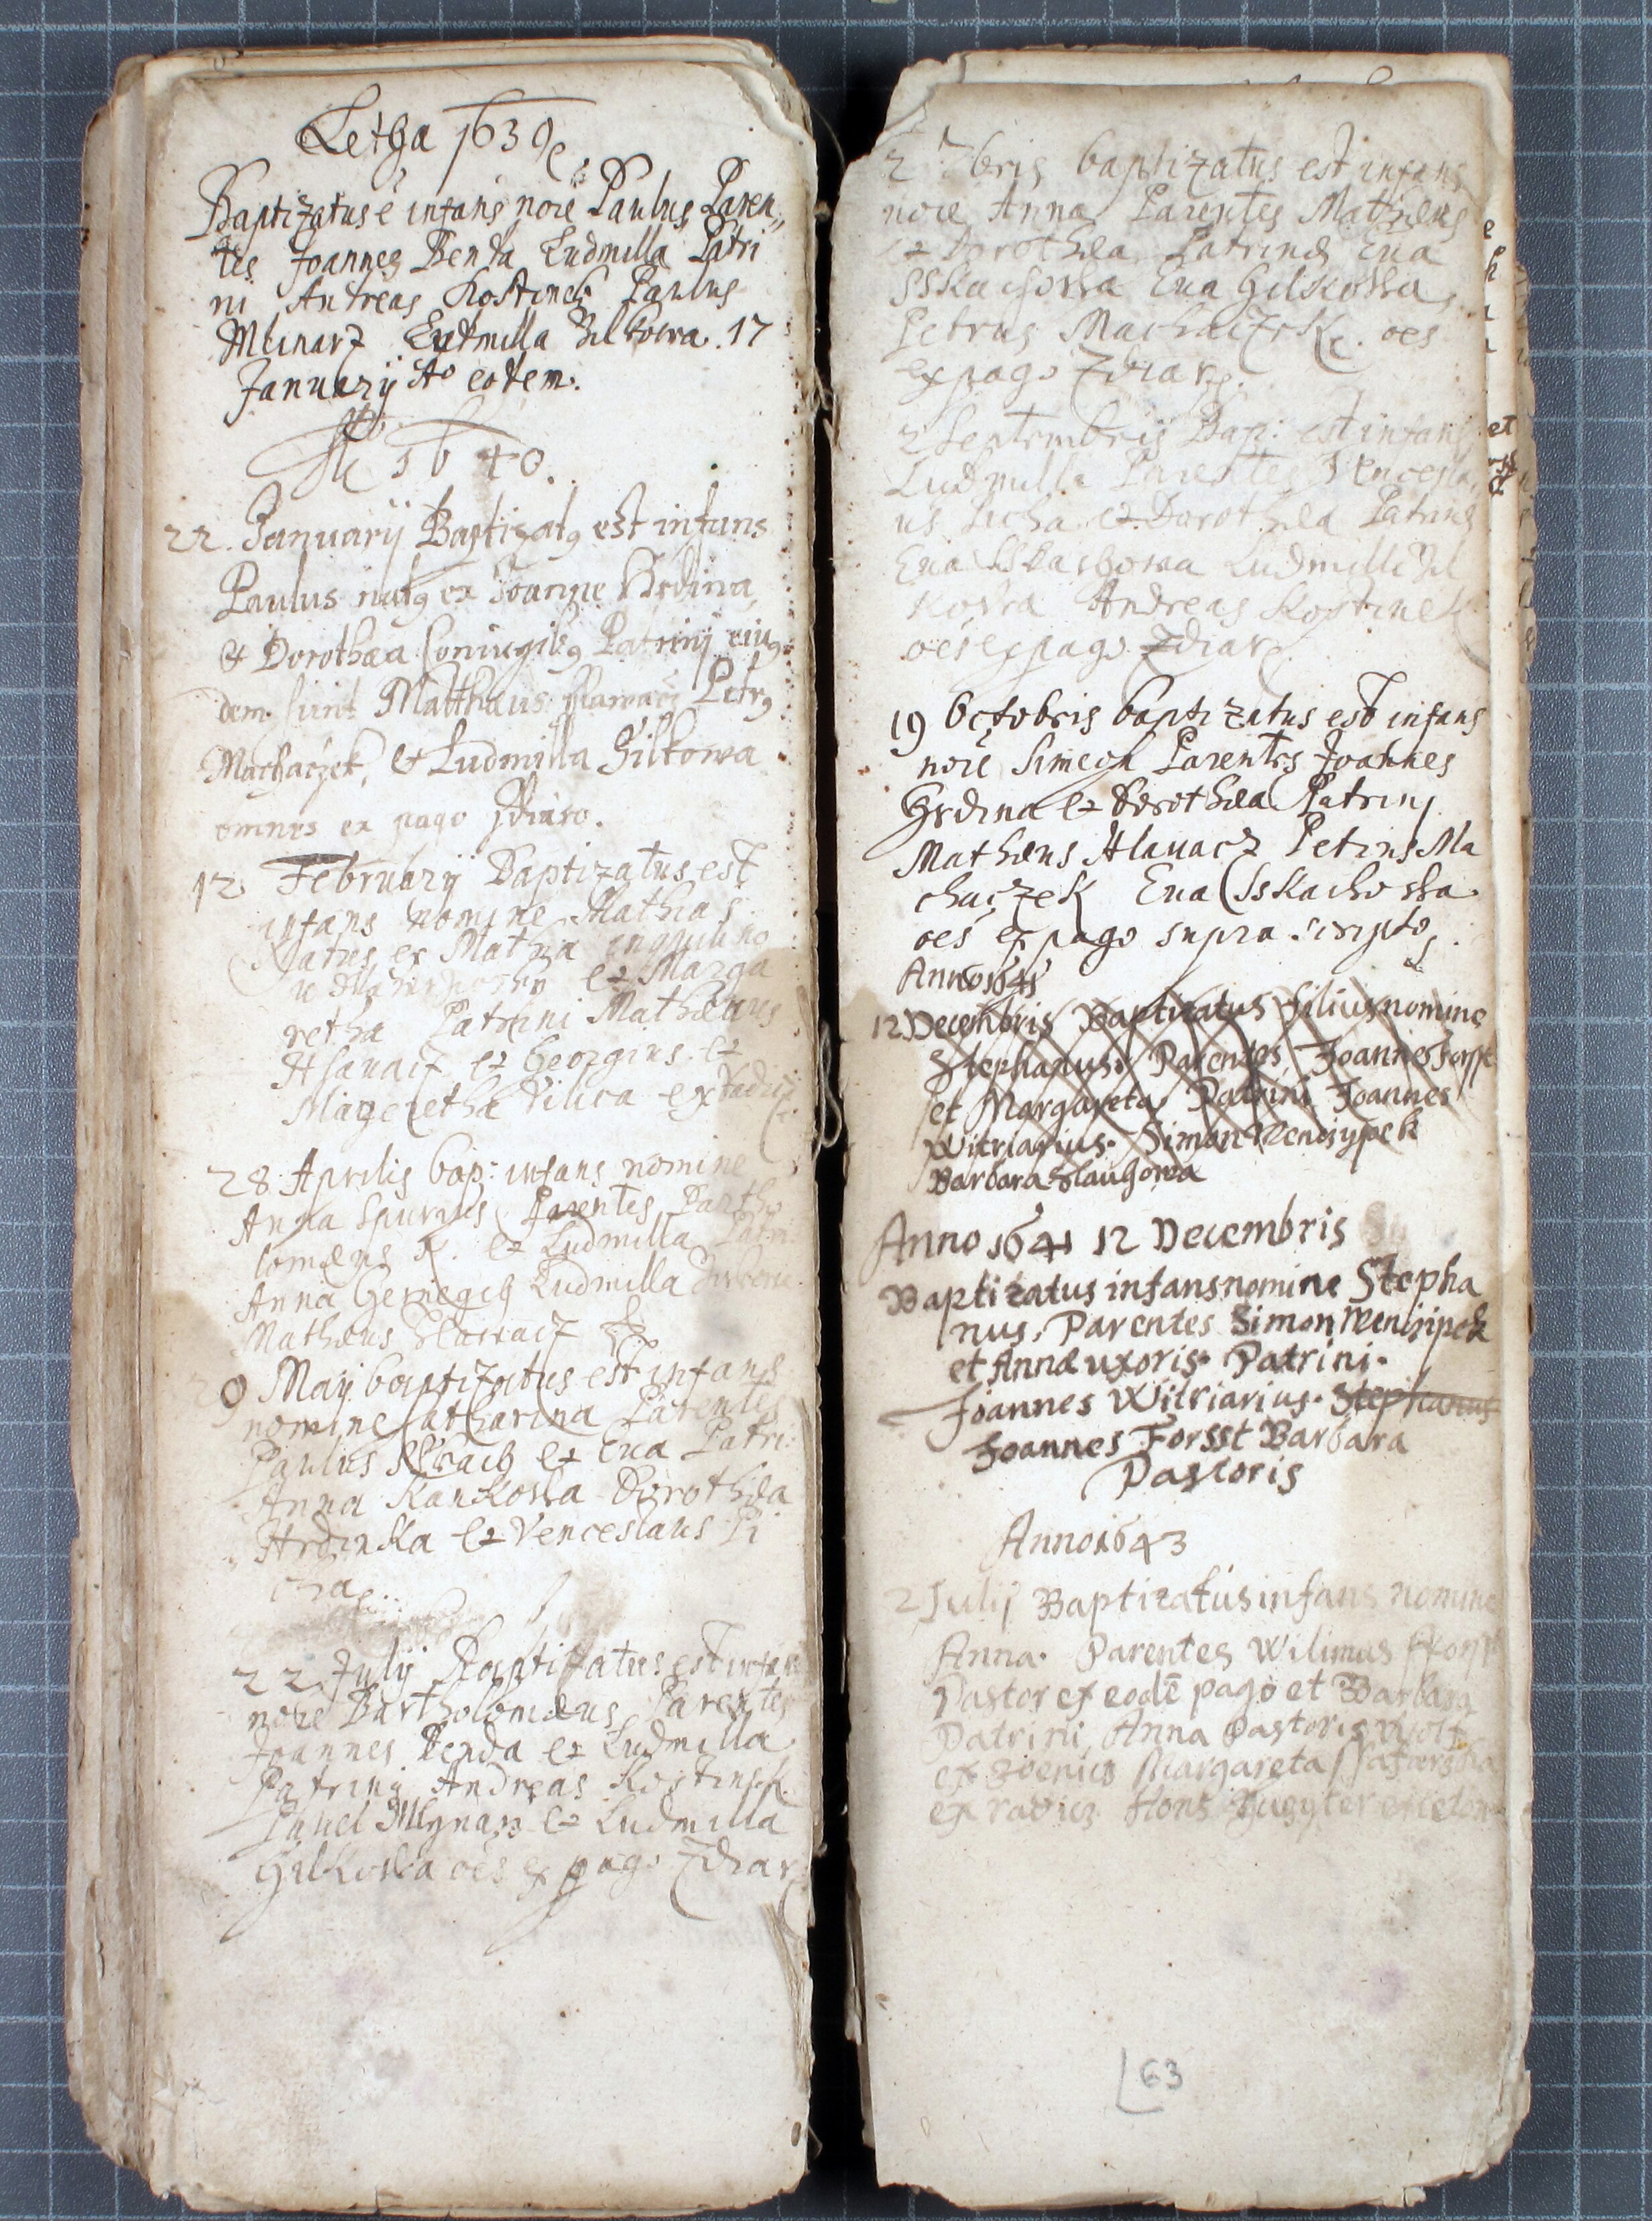 Letha 1639
Baptizatus ē infans noīe Paulus, Paren,,
tes Joannes Benda Ludmilla Patri
ni Andreas Kostinek Paulus
Mlinarz Ludmilla Zilkowa. 17
Januarij Aº eodem.
1640.
22. Januarij Baptizatꝯ est infans
Paulus natꝯ ex Joanne Hrdina,
& Dorothaa Coniugibꝯ Patrinj eiuꝯ
dem sunt Matthaus Petrꝯ
Machaczek, & Ludmilla Zilkowa
omnes ex pago Zdiaro.
12. February Baptizatus est
infans nomine Mathias
ex et Marga
retha Patrini Mathæus
Hlauacz et Georgius et
Margeretha ex
28 Aprilis bap: infans nomine
Anna Spurius Parentes Bartho
lomæus K. et Ludmilla Patri
Anna Ludmilla
Mathæus Hlawacz
9 Maij baptizatus est infans
nomine Catharina Parentes
Paulus et Eua Patri:
Anna Kankowa Dorothæa
Hrdinka et Venceslaus Pi
22 Julij Baptizatus est infans
noīe Bartholomæus Parentes
Joannes Benda et Ludmilla
Patrinj Andreas Kostinek.
Pauel Mlynarz et Ludmilla
Gilkowa oēs ex pago Zdiar
2 7bris baptizatus est infans
noīe Anna Parentes Mathæus
et Dorothæa Patrinæ Eua
Sskachowa Eua Gilkowa
Petrus Machaczek. oēs
ex pago Zdiar.
2 Septembris Bap: est infans
Ludmilla Parentes Wencesla,
us et Dorothæa Patrini
Eua Sskachowa Ludmilla Zil
kowa Andreas Kostinek
oēs ex pago Zdiar.
19 Octobris baptizatus est infans
noīe Simeon Parentes Joannes
Hrdina et Dorothæa Patrinj
Mathæus Hlauacz Petrus Ma
chaczek Eua Sskachowa
oēs ex pago supra scripto.
Anno 1641
12 Decembris Baptizatus filius nomine
Stephanus. Parentes, Joannes Forsst
et Margareta. Patrini Joannes
Witriarius. Simon Nencijpek
Barbara Slauhowa
Anno 1641 12 Decembris
Baptizatus infans nomine Stepha
nus, Parentes Simon Nencijpek
et Annæ uxoris. Patrini.
Joannes Witriarius. Stephanus
Joannes Forsst Barbara
Pastoris
Anno 1643
2 Julij Baptizatus infans nomine
Anna. Parentes Wilimus
Pastor ex eodē pago et Barbara
Patrini, Anna Pastoris
ex Margareta
ex
63